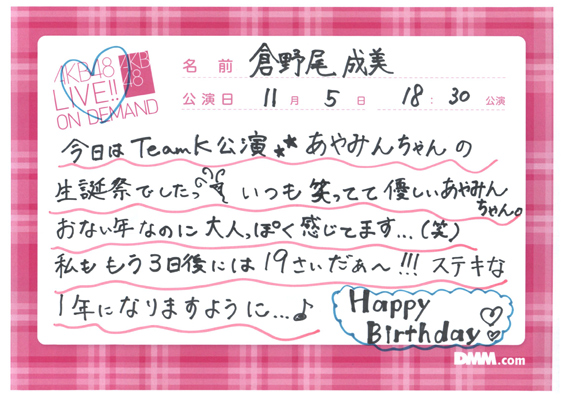 AKB48
LIVE!!
ON DEMAND
AKB
48
名前 倉野尾 成美
公演日 11月 5日 18:30 公演
今日は TeamK 公演 あやみんちゃんの
生誕祭でしたっ いつも 笑ってて 優しいあやみん
ちゃん。
おない年なのに 大人っぽく 感じてます...(笑)
私も もう3日後には 19さいだぁ〜!!! ステキな
1年になりますように...♪
Happy
Birthday♡
DMM.com